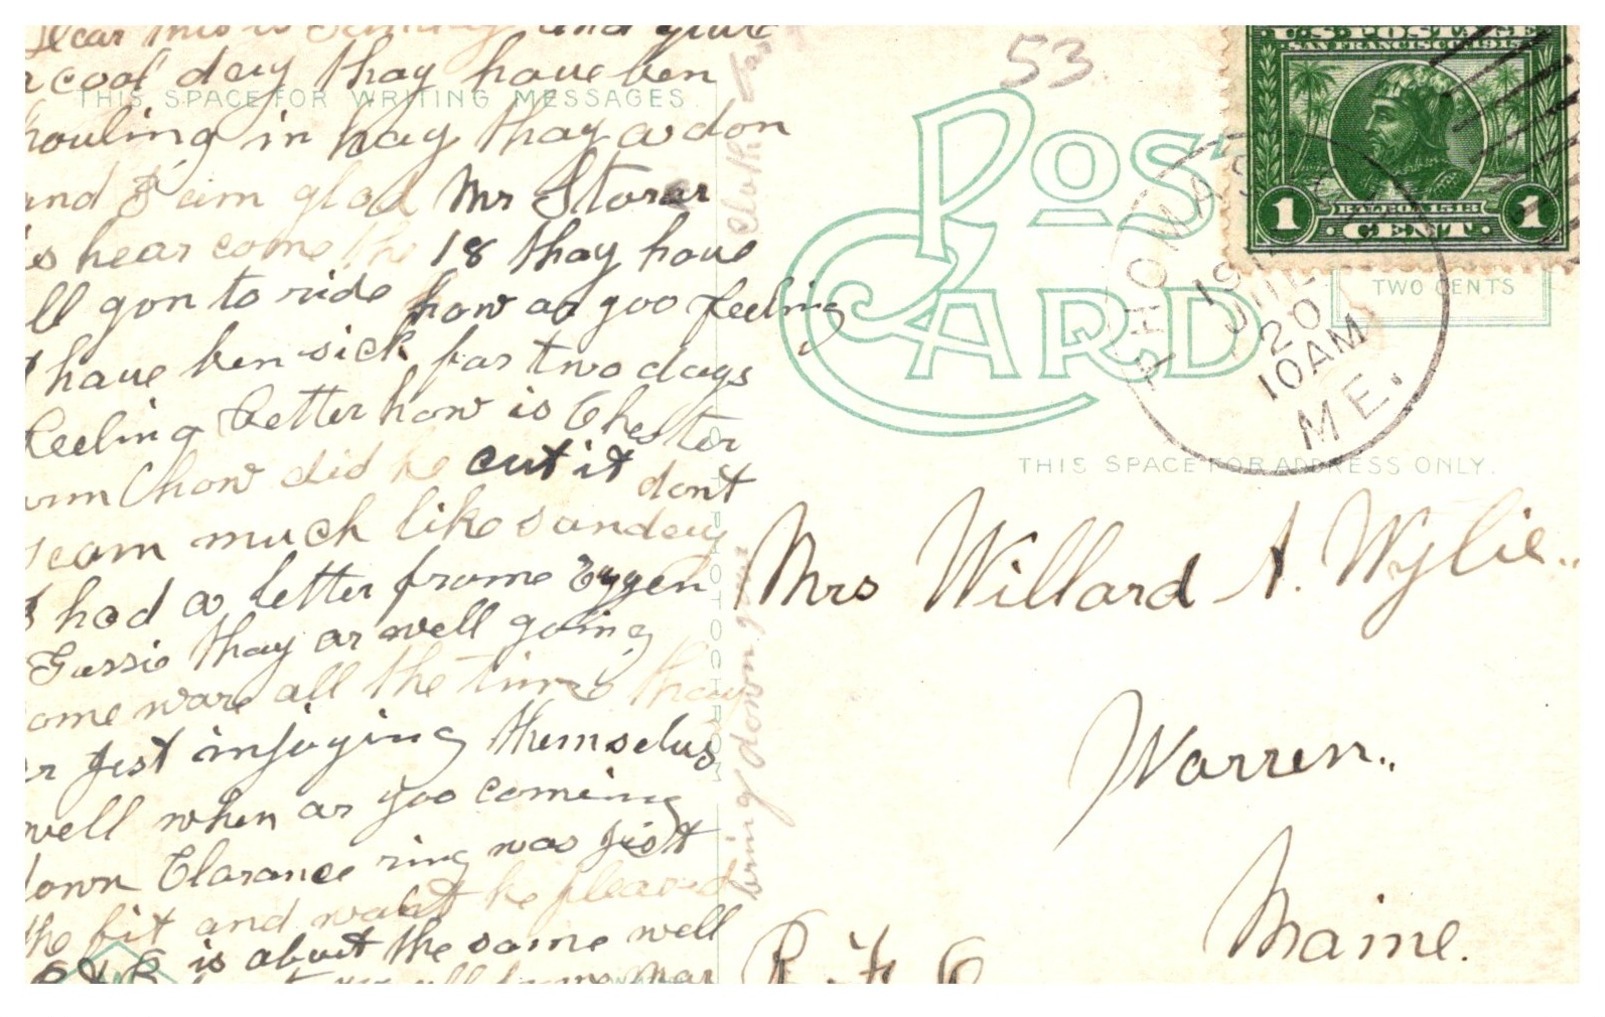 Dear this is Sunday and quite
a cool day thay have ben
houling in hay thay ar don
and I am glad Mr Storer
is hear come the 18 thay have
all gon to ride how ar yoo feeling
I have ben sick for two days
feeling better how is Chester
arm how did he cut it dont
seam much like sanday
I had a letter frome
Gussie thay ar well going
some ware all the time thay
ar jest injoying themselvs
well when ar yoo coming
down Clarance ring was jist
the fit and waht he pleased
is about the same well
THIS SPACE FOR WRITING MESSAGES.
cloth
bring down your
PHOTOCHROM
53
POST CARD
U.S. POSTAGE
SAN FRANCISCO 1915
BALBOA 1513
1 CENT 1
TWO CENTS
THOMASTON
JUL
20
10AM
ME.
THIS SPACE FOR ADDRESS ONLY.
Mrs Willard A. Wylie..
Warren..
Maine.
R. F. D